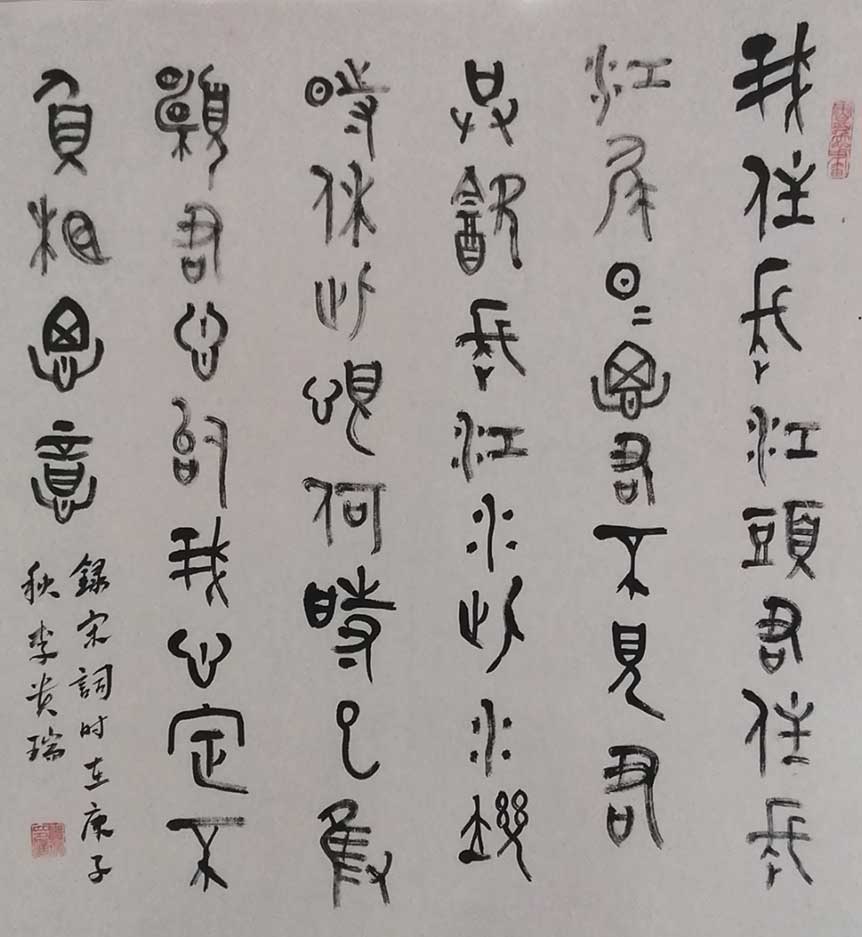 我住長江頭君住長
江尾日〻思君不見君
共飲長江水此水幾
時休此恨何時已隻
願君心似我心定不
負相思意
録宋詞时在庚子
秋李贵瑞